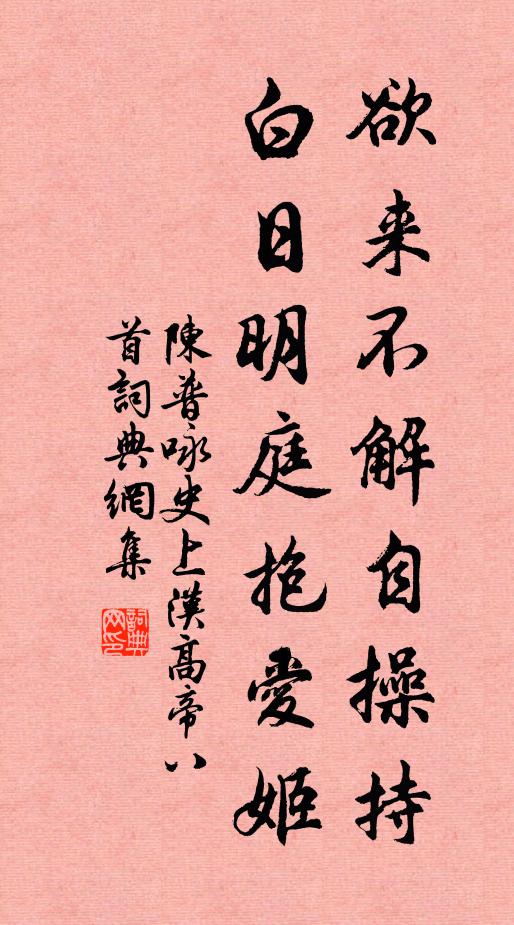 欲来不解自操持
白日明庭抱愛姬
陳普咏史上漢高帝八
首詞典網集
詞典网印